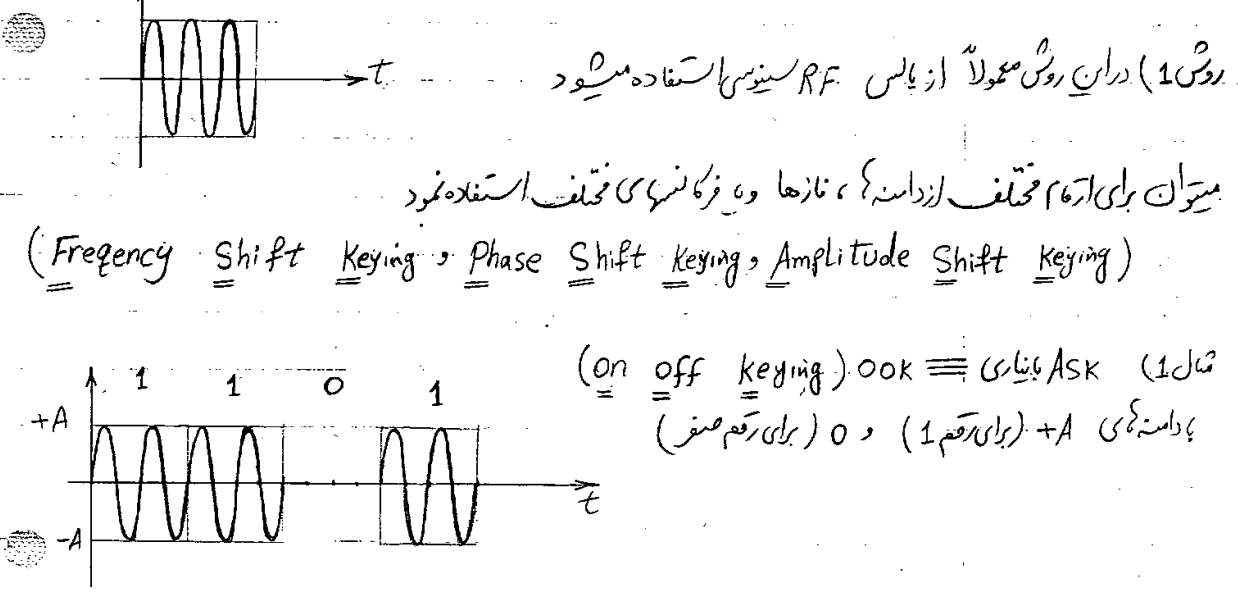 روش 1) در این روش معمولاً از پالس RF سینوسی استفاده میشود
t
میتوان برای ارقام مختلف از دامنه‌ها، فازها و یا فرکانسهای مختلف استفاده نمود
(Freqency Shift Keying و Phase Shift Keying و Amplitude Shift Keying)
مثال 1) ASK بایناری ≡ OOK (on off keying)
با دامنه‌های +A (برای رقم 1) و 0 (برای رقم صفر)
1 1 0 1
+A
t
-A